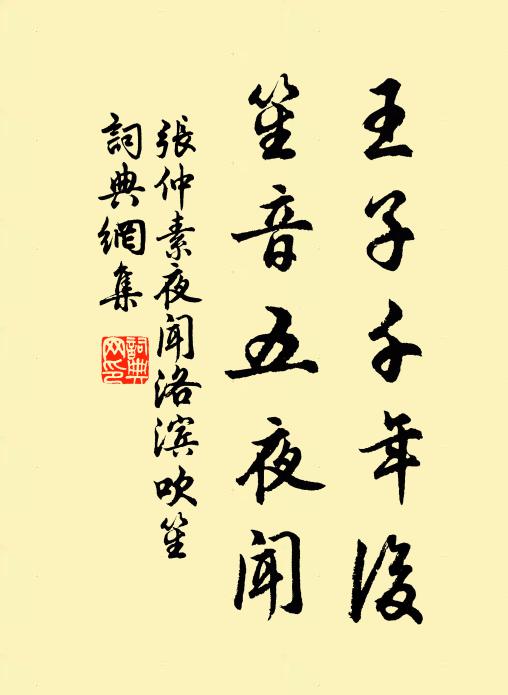 王子千年後
笙音五夜聞
張仲素夜聞洛滨吹笙
詞典網集
詞典
网印